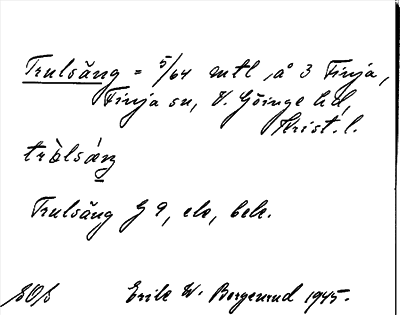 Trulsäng = 5/64 mtl, å 3 Finja,
Finja sn, V. Göinge hd,
Krist. l.
trò̀lsǽŋ
Trulsäng G 9, elo, bek.
Erik W. Borgenrud 1945.